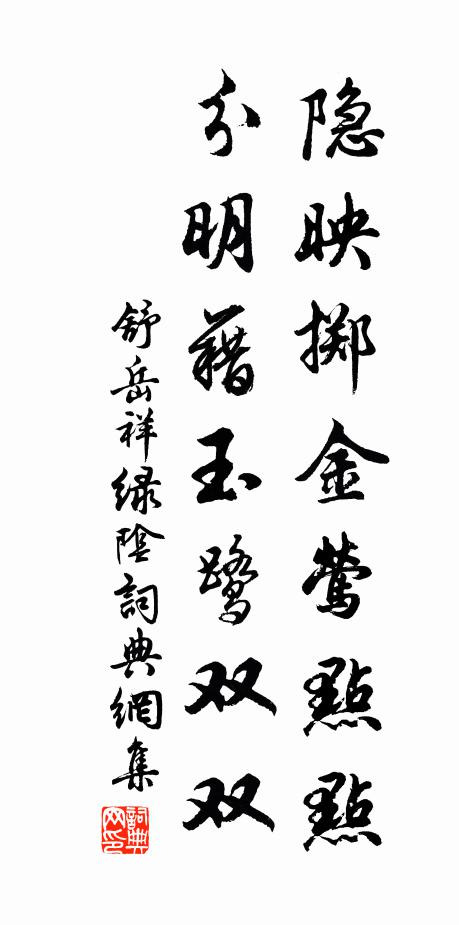 隐映掷金莺點點
分明藉玉鹭双双
舒岳祥绿陰詞典網集
詞典网印